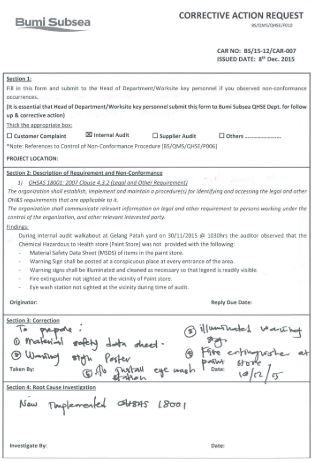 Bumi Subsea
CORRECTIVE ACTION REQUEST
BS/QMS/QHSE/F010
CAR NO: BS/15-12/CAR-007
ISSUED DATE: 8th Dec. 2015
Section 1:
Fill in this form and submit to the Head of Department/Worksite key personnel if you observed non-conformance
occurrences.
(It is essential that Head of Department/Worksite key personnel submit this form to Bumi Subsea QHSE Dept. for follow
up & corrective action)
Thick the appropriate box:
☐ Customer Complaint ☒ Internal Audit ☐ Supplier Audit ☐ Others
*Note: References to Control of Non-Conformance Procedure (BS/QMS/QHSE/P006)
PROJECT LOCATION:
Section 2: Description of Requirement and Non-Conformance
1) OHSAS 18001: 2007 Clause 4.3.2 (Legal and Other Requirement)
The organization shall establish, implement and maintain a procedure(s) for identifying and accessing the legal and other
OH&S requirements that are applicable to it.
The organization shall communicate relevant information on legal and other requirement to persons working under the
control of the organization, and other relevant interested party.
Findings:
During internal audit walkabout at Gelang Patah yard on 30/11/2015 @ 1030hrs the auditor observed that the
Chemical Hazardous to Health store (Paint Store) was not provided with the following:
- Material Safety Data Sheet (MSDS) of items in the paint store.
- Warning Sign shall be posted at a conspicuous place at every entrance of the area.
- Warning signs shall be illuminated and cleaned as necessary so that legend is readily visible.
- Fire extinguisher not sighted at the vicinity of Paint Store.
- Eye wash station not sighted at the vicinity during time of audit.
Originator: Reply Due Date:
Section 3: Correction
To prepare :
① material safety data sheet.
② Warning sign Poster
③ illuminated warning
sign
④ Fire extinguisher at
paint store
⑤ To install eye wash
station
Taken By: Date:
10/12/15
Section 4: Root Cause Investigation
New Implemented OHSAS 18001
Investigate By: Date: